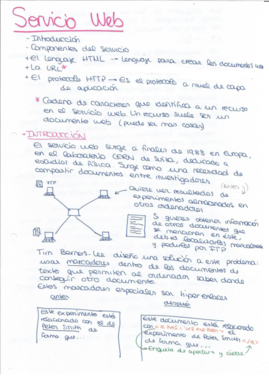 Servicio Web
- Introducción
- Componentes del servicio
+ El lenguaje HTML → lenguaje para crear los documentos web
+ La URL*
+ El protocolo HTTP → Es el protocolo a nivel de capa
de aplicación
* Cadena de caracteres que identifica a un recurso
en el servicio web. Un recurso suele ser un
documento web (puede ser más cosas)
- INTRODUCCIÓN
El servicio web surge a finales de 1988 en Europa,
en el laboratorio CERN de Suiza, dedicado a
estudios de física. Surge como una necesidad de
compartir documentos entre investigadores
FTP
Quiere ver resultados de
experimentos almacenados en
otros ordenadores
Si quieres obtener información
de otros documentos que
se mencionan en este,
debes
y pedirlos por FTP
Tim Berners-Lee diseñó una solución a este problema:
unas marcadores dentro de los documentos de
texto que permiten al ordenador saber donde
conseguir otro documento.
Estos marcadores especiales son hiperenlaces
antes
después
Este experimento está
relacionado con el de
Peter Smith de
forma que...
Este documento está relacionado
con
experimento de Peter Smith </a>
de forma que...
→ Etiqueta de apertura y cierre